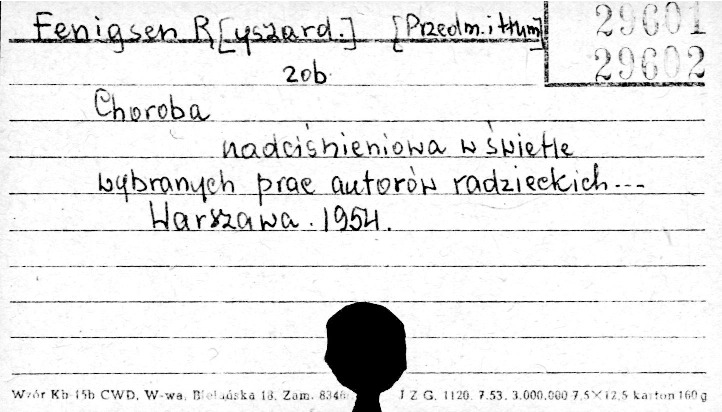 Fenigsen R[yszard.] [Przedm. i tłum]
29601
29602
zob.
Choroba
nadciśnieniowa w świetle
wybranych prac autorów radzieckich ---
Warszawa. 1954.
Wzór Kb-15b CWD, W-wa, Bielańska 18, Zam. 8346 J Z G. 1120. 7.53. 3.000.000 7,5×12,5 karton 160 g